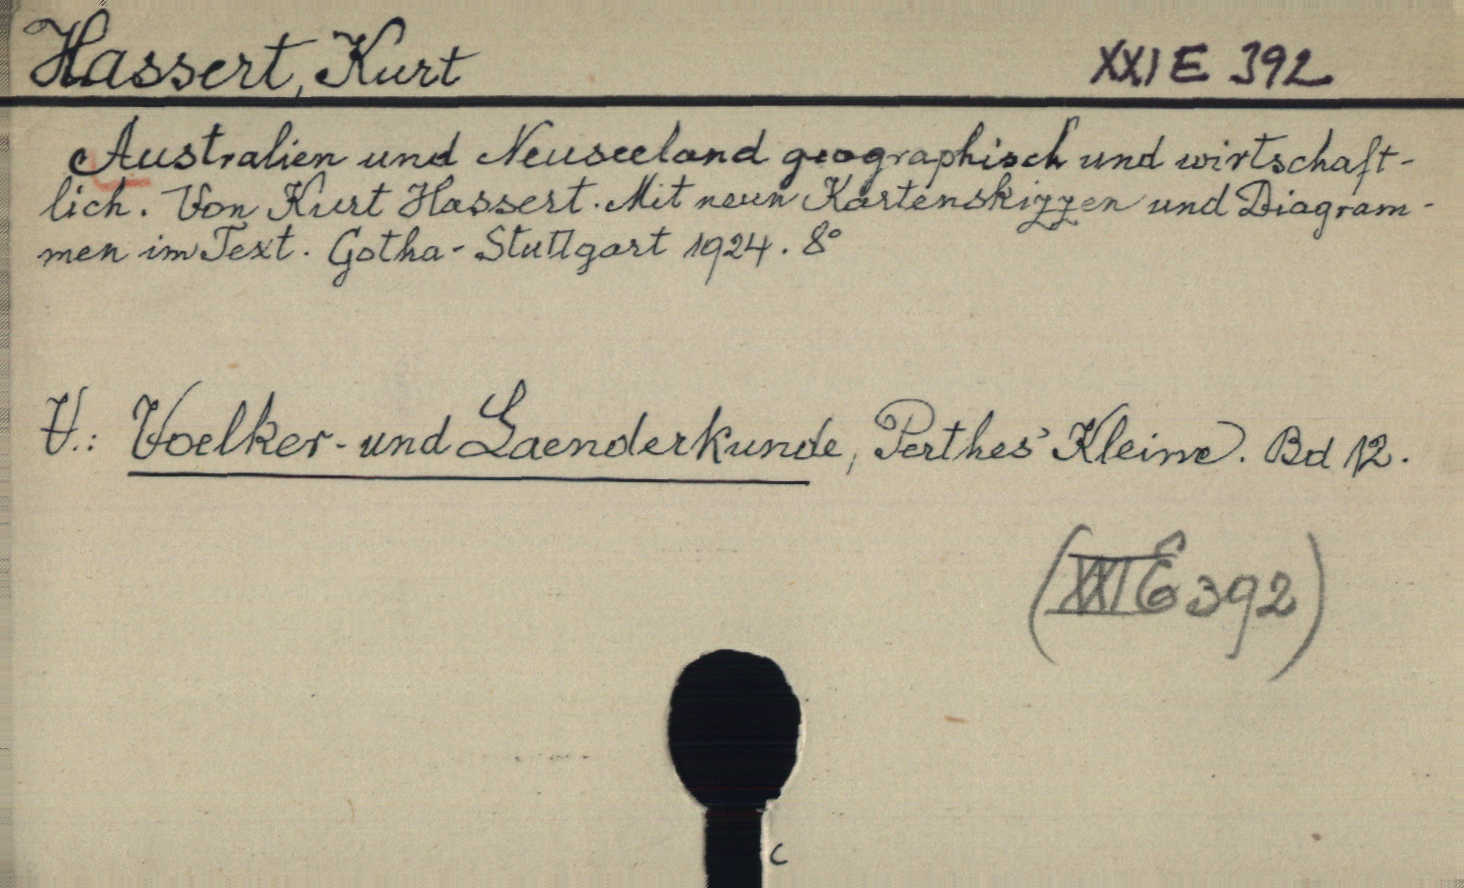 Hassert, Kurt XXI E 392
Australien und Neuseeland geographisch und wirtschaft-
lich. Von Kurt Hassert. Mit neun Kartenskizzen und Diagram-
men im Text. Gotha-Stuttgart 1924. 8°
V.: Voelker- und Laenderkunde, Perthes' Kleine. Bd 12.
(XXI E 392)
c